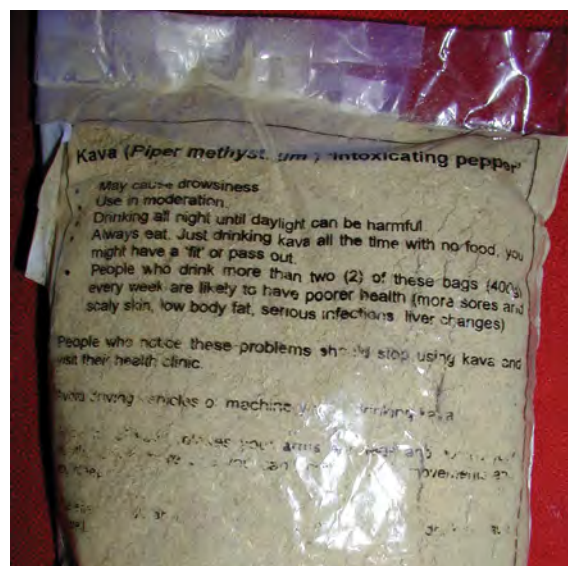 Kava (Piper methyst. um ) 'Intoxicating pepper'
• May cause drowsiness
• Use in moderation.
• Drinking all night until daylight can be harmful
• Always eat. Just drinking kava all the time with no food, you
might have a 'fit' or pass out.
• People who drink more than two (2) of these bags (400g)
every week are likely to have poorer health (more sores and
scaly skin, low body fat, serious infections, liver changes)
People who notice these problems should stop using kava and
visit their health clinic.
Avoid driving vehicles or machinery drinking kava
your arms and
you can movements